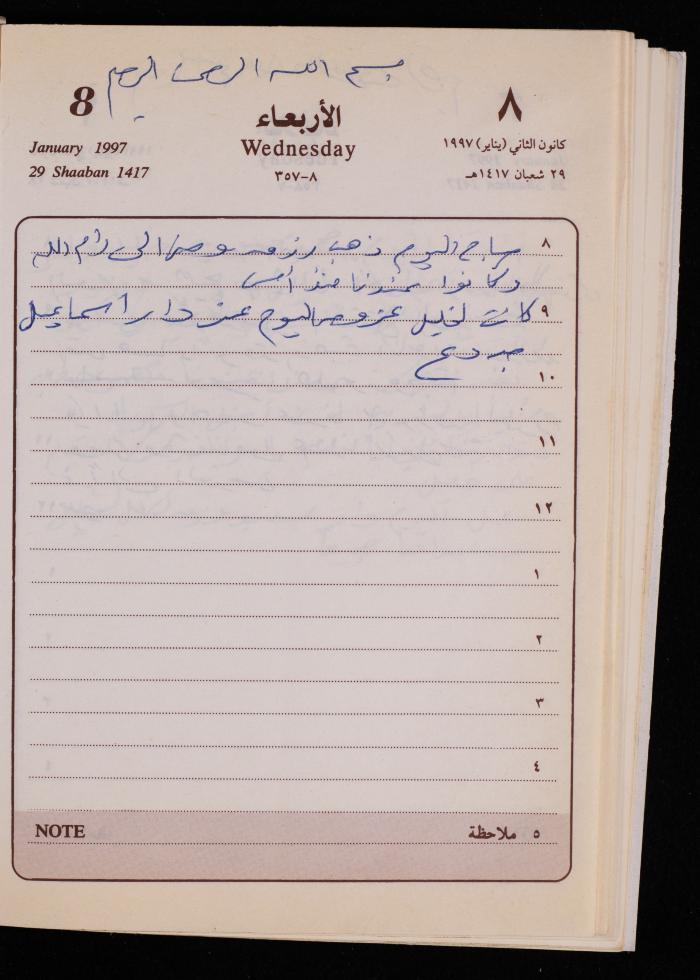 بسم الله الرحمن الرحيم
8
٨
الأربعاء
January 1997
Wednesday
كانون الثاني (يناير) ١٩٩٧
29 Shaaban 1417
٨-٣٥٧
٢٩ شعبان ١٤١٧هـ
٨ صباح اليوم ذهب رزمه و صها الى رام الله
وكانوا عندنا منذ أمس
٩ كانت لخليل عزومه اليوم عند دار اسماعيل
جدوع
١٠
١١
١٢
١
٢
٣
٤
NOTE
٥ ملاحظة